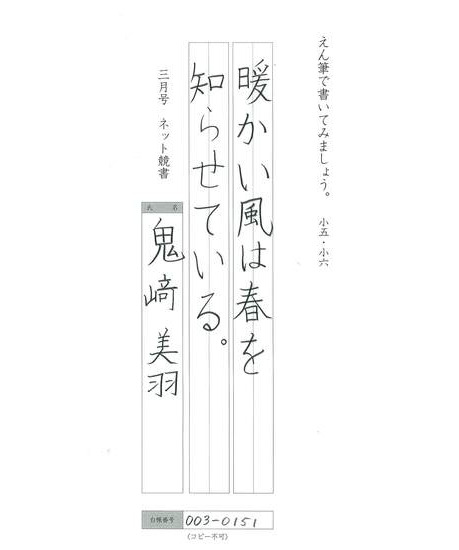 えん筆で書いてみましょう。 小五・小六
暖かい風は春を
知らせている。
三月号 ネット競書
氏名
鬼﨑美羽
台帳番号 003-0151
(コピー不可)